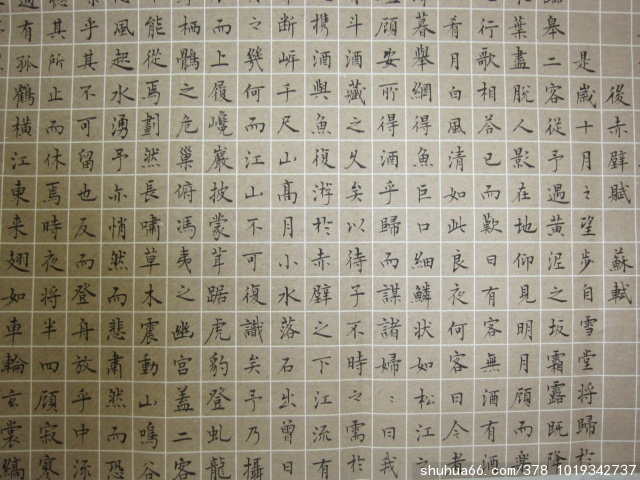 後赤壁賦 蘇軾
是歲十月之望步自雪堂將歸於
皋二客從予過黃泥之坂霜露既降
葉盡脫人影在地仰見明月顧而樂
行歌相答已而歎曰有客無酒有酒
肴月白風清如此良夜何客曰今者
暮舉網得魚巨口細鱗狀如松江之
顧安所得酒乎歸而謀諸婦〻曰我
斗酒藏之久矣以待子不時之需於
攜酒與魚復游於赤壁之下江流有
斷岸千尺山高月小水落石出曾日
之幾何而江山不可復識矣予乃攝
而上履巉巖披蒙茸踞虎豹登虬龍
棲鶻之危巢俯馮夷之幽宮蓋二客
能從焉劃然長嘯草木震動山鳴谷
風起水湧予亦悄然而悲肅然而恐
乎其不可留也反而登舟放乎中流
其所止而休焉時夜將半四顧寂寥
有孤鶴橫江東來翅如車輪玄裳縞
shuhua66.com/378 1019342737